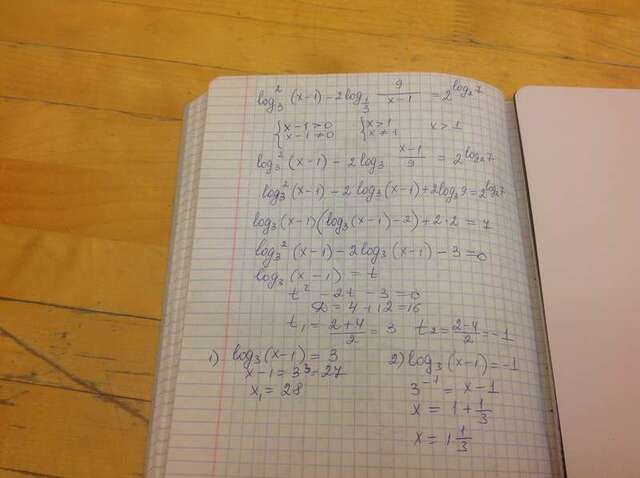 log₃²(x-1) - 2log_{1/3} 9/(x-1) = 2^{log₂7}
{x-1>0 {x>1 x>1
{x-1≠0 {x≠1
log₃²(x-1) - 2log₃ (x-1)/9 = 2^{log₂7}
log₃²(x-1) - 2 log₃(x-1) + 2log₃9 = 2^{log₂7}
log₃(x-1)(log₃(x-1)-2) + 2·2 = 7
log₃²(x-1) - 2log₃(x-1) - 3 = 0
log₃(x-1) = t
t² - 2t - 3 = 0
D = 4+12 = 16
t₁ = (2+4)/2 = 3 t₂ = (2-4)/2 = -1
1) log₃(x-1) = 3
x-1 = 3³ = 27
x₁ = 28
2) log₃(x-1) = -1
3⁻¹ = x-1
x = 1 + 1/3
x = 1 1/3